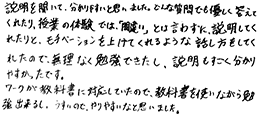 説明を聞いて、分かりやすいと思いました。どんな質問でも優しく答えて
くれたり、授業の体験では、"間違い"とは言わずに、説明してく
れたりと、モチベーションを上げてくれるような話し方をしてく
れたので、無理なく勉強できたし、説明もすごく分かり
やすかったです。
ワークが教科書に対応していたので、教科書を使いながら勉
強出来るし、うすいので、やりやすいなと思いました。